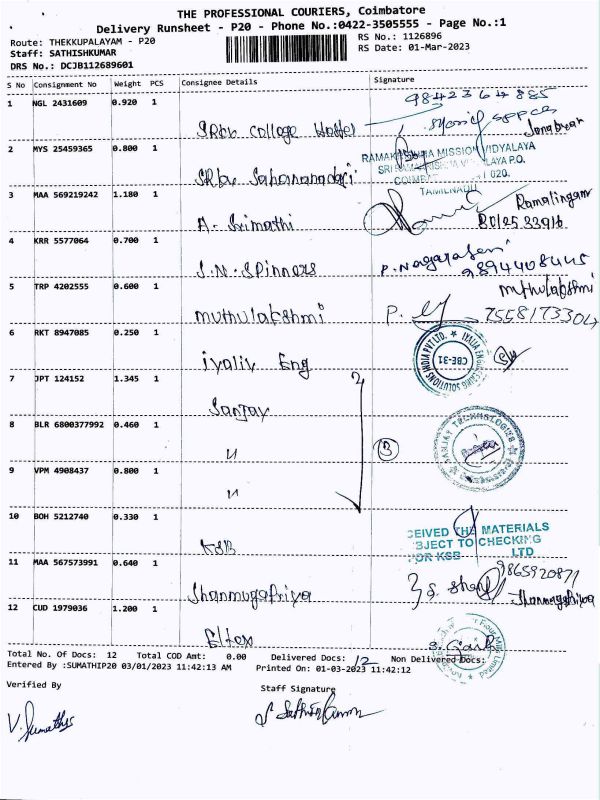 THE PROFESSIONAL COURIERS, Coimbatore
Delivery Runsheet - P20 - Phone No.:0422-3505555 - Page No.:1
Route: THEKKUPALAYAM - P20
RS No.: 1126896
Staff: SATHISHKUMAR
RS Date: 01-Mar-2023
DRS No.: DCJB112689601
S No Consignment No Weight PCS Consignee Details Signature
1 NGL 2431609 0.920 1 SRkv College Hostel 9842364885
2 MYS 25459365 0.800 1 SRkv
RAMAKRISHNA MISSION VIDYALAYA
TAMILNADU
3 MAA 569219242 1.180 1 A. Srimathi Ramalingam
4 KRR 5577064 0.700 1 J.N. Spinners 9894408445
5 TRP 4202555 0.600 1 muthulakshmi P. muthulakshmi
7558173304
6 RKT 8947085 0.250 1 iyaliv Eng
SOLUTIONS INDIA PVT LTD. CBE-31
7 JPT 124152 1.345 1 Sanjay
8 BLR 6800377992 0.460 1 "
3
SANJAY TECHNOLOGIES
9 VPM 4908437 0.800 1 "
10 BOH 5212740 0.330 1 KSB
CEIVED THE MATERIALS
BJECT TO CHECKING
FOR KSB LTD
11 MAA 567573991 0.640 1 Shanmugapriya 9865920871
Shanmugapriya
12 CUD 1979036 1.200 1 Eltex
Total No. Of Docs: 12 Total COD Amt: 0.00 Delivered Docs: 12 Non Delivered Docs:
Entered By :SUMATHIP20 03/01/2023 11:42:13 AM Printed On: 01-03-2023 11:42:12
Verified By Staff Signature
V. Sumathi